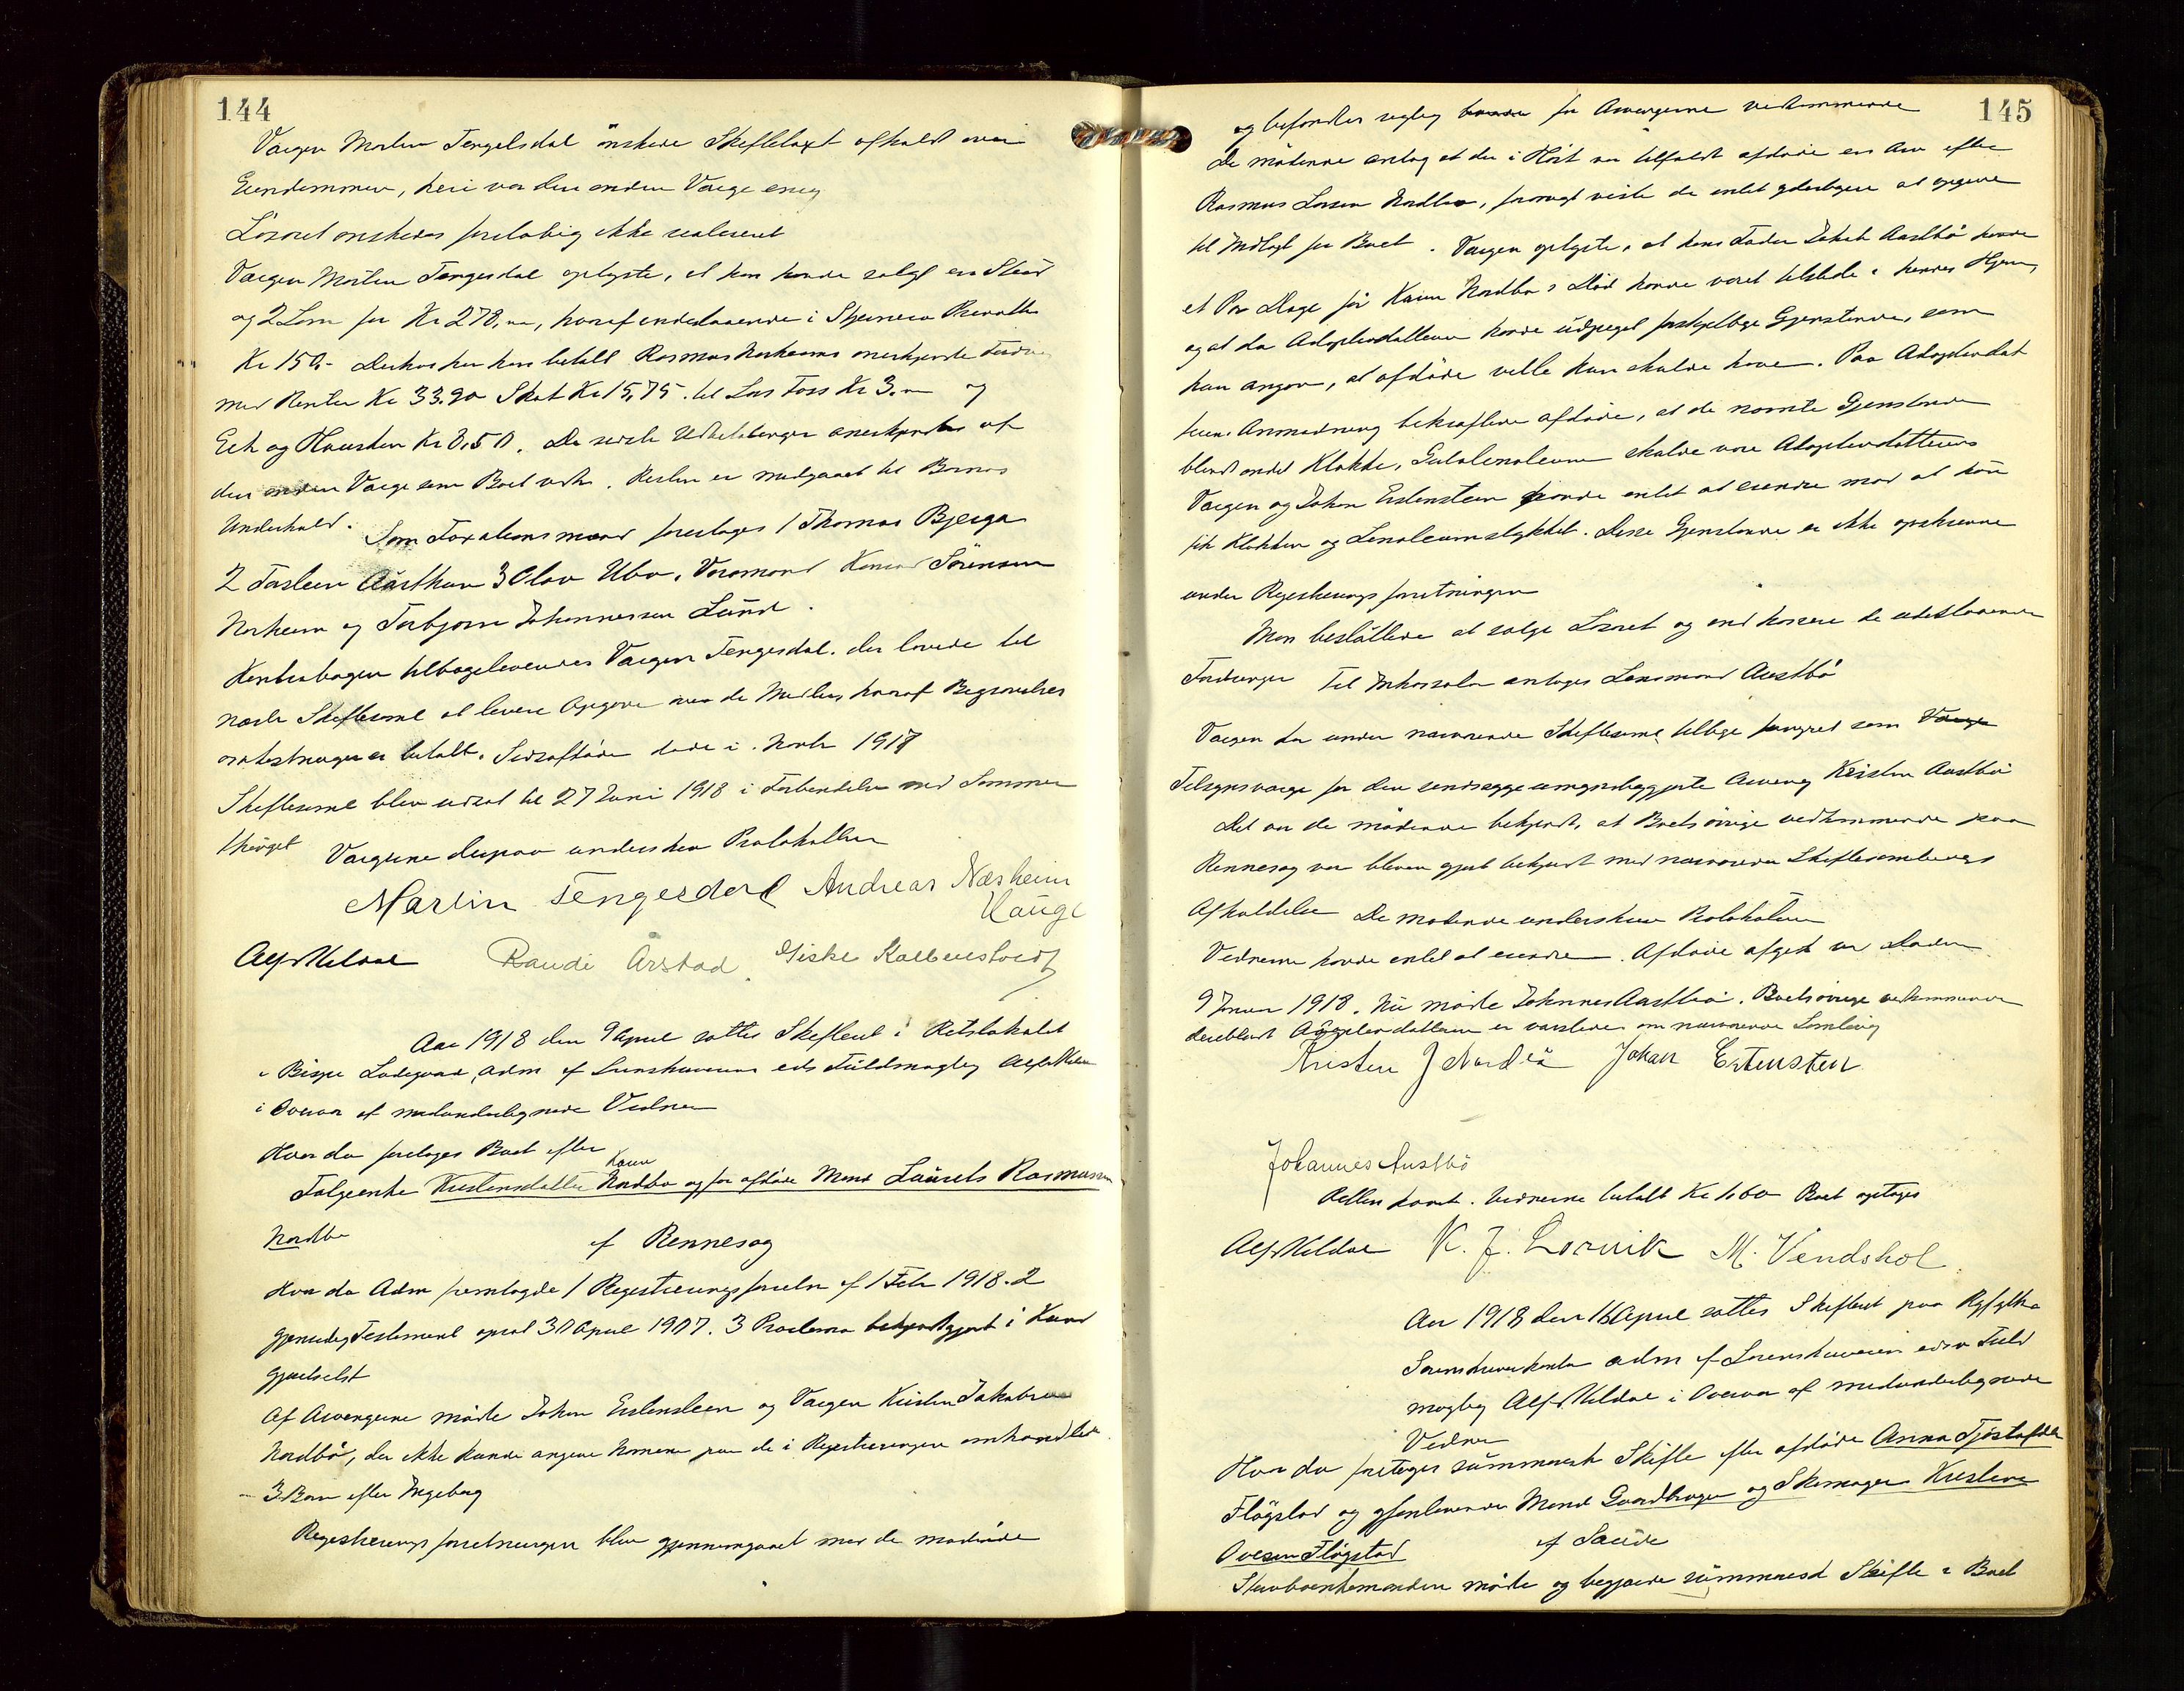 144
Værgen Martin Tengesdal ønskede Skiftetaxt afholdt over
Eiendommen, heri var den anden Værge enig
Løsøret ønskedes foreløbig ikke realiseret
Værgen Martin Tengesdal oplyste, at han havde solgt en
og 2 Lam for Kr 278, hvoraf indestaaende i
Kr 150,- Derhos har han betalt Rasmus Norheims anerkjendte
med Renter Kr 33.90 Skat Kr 15,75. til Lars Foss Kr 3. og
og Kr 8,50. De sidste Udbetalinger anerkjendtes af
den anden Værge som Boet vedk. Resten er medgaaet til Barnas
Underhold. Som Taxationsmænd foreslages 1 Thomas Bjerga
2 Torleiv Aarthun 3 Olav Ubø. Varamænd Konrad Sørensen
Norheim og Torbjørn Johannessen Lund.
Kontrabogen tilbageleveredes Værgen Tengesdal. der lovede til
næste Skiftesaml at levere Opgave over de Midler, hvoraf Begravelses
er betalt. Sidstafdøde døde i Novbr 1917
Skiftesaml blev udsat til 27 Juni 1918 i Forbindelse med Sommer
thinget Værgerne derpaa underskrev Protokollen
Martin Tengesdal Andreas Næsheim
Hauge
Alf Kildal Raudi Årstad Giske
Aar 1918 den 9 April sattes Skifteret i Retslokalet
i Bispe Ladegaard, adm af Sorenskriverens eds Fuldmægtig Alf Kildal
i Overvær af medundertegnede Vidner
Hvor da foretages Boet efter
Karen
Følgeenke Kristensdatter Nordbø og før afdøde Mand Laurits Rasmussen
Nordbø af Rennesøy
Hvor da Adm fremlagde 1 Registreringsforretn af 1 Febr 1918. 2
gjensidig Testament oprat 30 April 1907. 3 Proclama bekjendtgjort i Kund
gjørelsest
Af Arvingerne mødte Johan Eistensteen og Værgen Kristen Jakobsen
Nordbø, der ikke kunde angive Navnene paa de i Registreringen omhandlede
3 Børn efter Ingeborg
Registreringsforretningen blev gjennemgaaet med de mødende
145
og befandtes rigtig for Arvingerne vedkommende
De mødende antog at der i Høst var tilfaldt afdøde en Arv efter
Rasmus Larsen Nordbø, forøvrigt vidste de intet yderligere at opgive
til Indtægt for Boet. Værgen oplyste, at hans Fader Jakob Aastbø havde
et Par Dage før Karen Nordbøs Død havde været tilstede i hendes Hjem,
og at da Adoptivdatteren havde udpeget forskjellige Gjenstande, som
hun angav, at afdøde vilde hun skulde have. Paa Adoptivdat
terens Anmodning bekræftede afdøde, at de nævnte Gjenstande
blandt andet Klokke, Gulvlinoleum skulde være Adoptivdatterens
Værgen og Johan Eistensteen havde intet at erindre mod at hun
fik Klokken og Linoleumstykket. Disse Gjenstande er ikke opskrevne
under Registreringsforretningen
Man besluttede at sælge Løsøret og indkassere de udestaaende
Fordringer Til Inkassator antages Lensmand Austbø
Værgen har under nærværende Skiftesaml tillige fungeret som
Tilsynsværge for den sindssyge umyndiggjorte Arving Kristen Austbø
Det var de mødende bekjendt, at Boets øvrige vedkommende paa
Rennesøy var bleven gjort bekjendt med nærværende Skiftesamlings
Afholdelse De mødende underskrev Protokollen
Vidnerne havde intet at erindre. Afdøde afgik ved Døden
9 Januar 1918. Nu mødte Johannes Austbø. Boets øvrige vedkommende
deriblandt Adoptivdatteren er varslede om nærværende Samling
Kristen J Nordbø Johan Eistensten
Johannes Austbø
Retten hævet. Vidnerne betalt Kr 1.60 Boet optages
Alf Kildal K. J. Lervik M. Vendshol
Aar 1918 den 16 April sattes Skifteret paa Ryfylke
Sorenskriverkontor adm af Sorenskriveren edsv Fuld
mægtig Alf Kildal i Overvær af medundertegnede
Vidner
Hvor da foretages summarisk Skifte efter afdøde Anna Tjøstofsdtr
Fløgstad og gjenlevende Mand Gaardbruger og Skomager Kristian
Ovesen Fløgstad af Saude
Stervboenkemanden mødte og begjærede summarisk Skifte i Boet